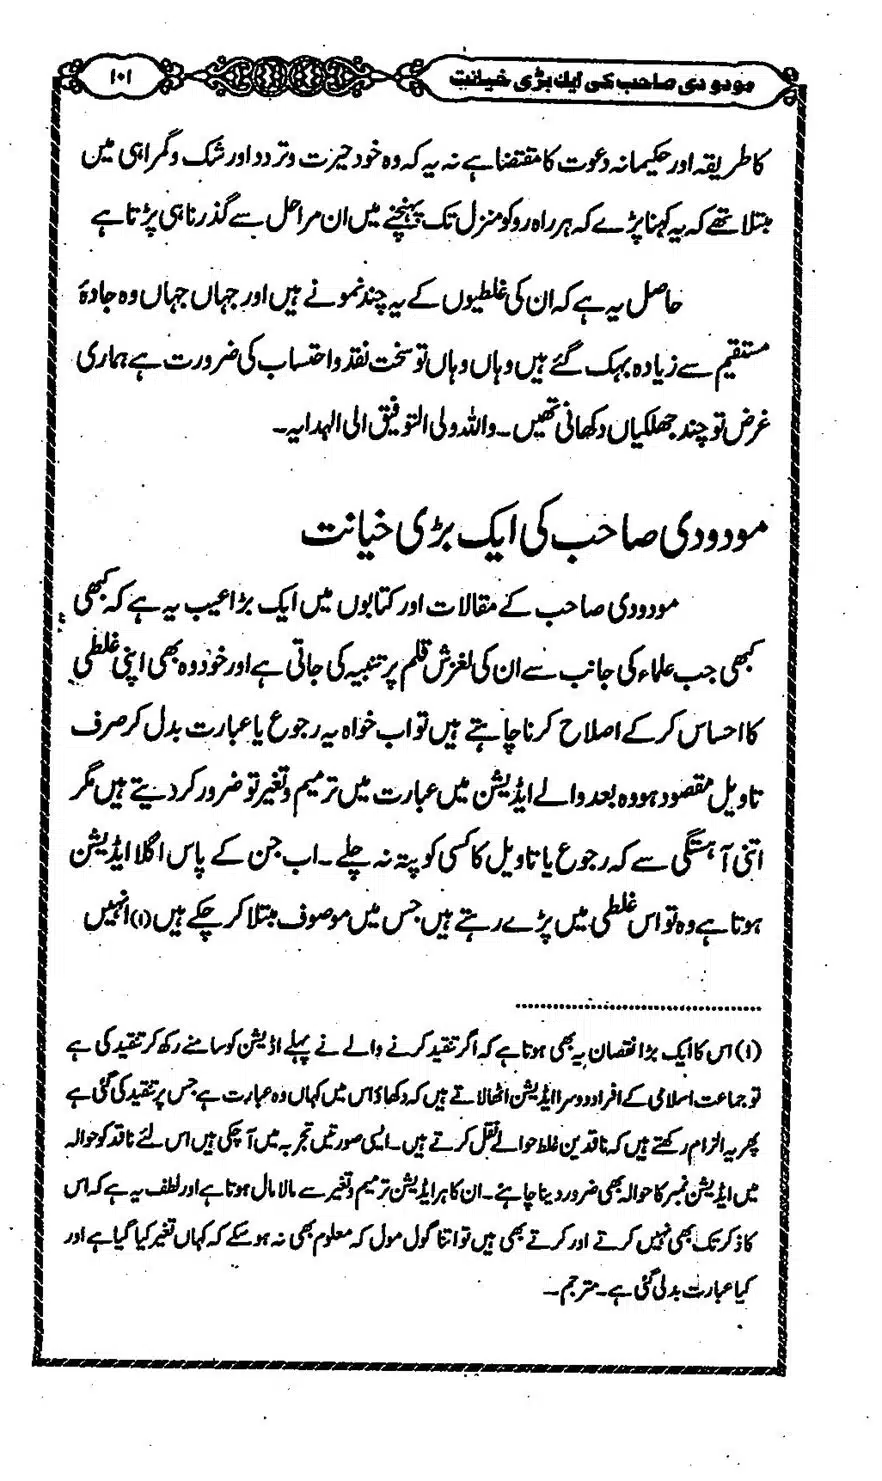 مودودی صاحب کی ایک بڑی خیانت
۱۰۱
کا طریقہ اور حکیمانہ دعوت کا مقتضا ہے نہ یہ کہ وہ خود حیرت و تردد اور شک و گمراہی میں
مبتلا تھے کہ یہ کہنا پڑے کہ ہر راہ رو کو منزل تک پہنچنے میں ان مراحل سے گذرنا ہی پڑتا ہے
حاصل یہ ہے کہ ان کی غلطیوں کے یہ چند نمونے ہیں اور جہاں جہاں وہ جادۂ
مستقیم سے زیادہ بہک گئے ہیں وہاں وہاں تو سخت نقد و احتساب کی ضرورت ہے ہماری
غرض تو چند جھلکیاں دکھانی تھیں۔ واللہ ولی التوفیق الی الہدایہ۔
مودودی صاحب کی ایک بڑی خیانت
مودودی صاحب کے مقالات اور کتابوں میں ایک بڑا عیب یہ ہے کہ کبھی
کبھی جب علماء کی جانب سے ان کی لغزش قلم پر تنبیہ کی جاتی ہے اور خود وہ بھی اپنی غلطی
کا احساس کر کے اصلاح کرنا چاہتے ہیں تو اب خواہ یہ رجوع یا عبارت بدل کر صرف
تاویل مقصود ہو وہ بعد والے ایڈیشن میں عبارت میں ترمیم و تغیر تو ضرور کر دیتے ہیں مگر
اتنی آہستگی سے کہ رجوع یا تاویل کا کسی کو پتہ نہ چلے۔ اب جن کے پاس اگلا ایڈیشن
ہوتا ہے وہ تو اس غلطی میں پڑے رہتے ہیں جس میں موصوف مبتلا کر چکے ہیں (۱) انہیں
(۱) اس کا ایک بڑا نقصان یہ بھی ہوتا ہے کہ اگر تنقید کرنے والے نے پہلے اڈیشن کو سامنے رکھ کر تنقید کی ہے
تو جماعت اسلامی کے افراد دوسرا ایڈیشن اٹھا لاتے ہیں کہ دکھاؤ اس میں کہاں وہ عبارت ہے جس پر تنقید کی گئی ہے
پھر یہ الزام رکھتے ہیں کہ ناقدین غلط حوالے نقل کرتے ہیں۔ ایسی صورتیں تجربہ میں آ چکی ہیں اس لئے ناقد کو حوالہ
میں ایڈیشن نمبر کا حوالہ بھی ضرور دینا چاہئے۔ ان کا ہر ایڈیشن ترمیم و تغیر سے مالا مال ہوتا ہے اور لطف یہ ہے کہ اس
کا ذکر تک بھی نہیں کرتے اور کرتے بھی ہیں تو اتنا گول مول کہ معلوم بھی نہ ہو سکے کہ کہاں تغیر کیا گیا ہے اور
کیا عبارت بدلی گئی ہے۔ مترجم۔